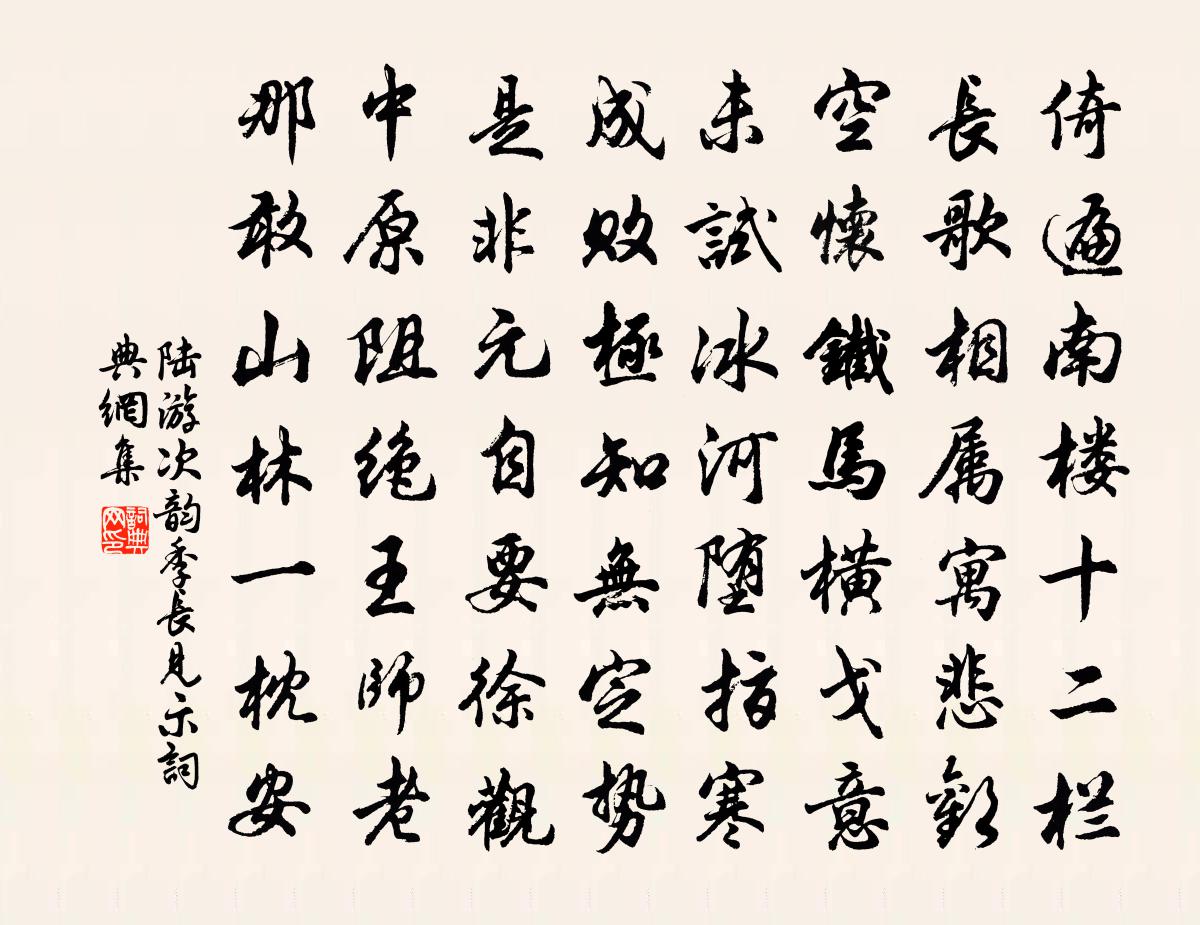 倚遍南楼十二栏
長歌相属寓悲歡
空懷鐵馬橫戈意
未試冰河堕指寒
成敗極知無定势
是非元自要徐觀
中原阻绝王師老
那敢山林一枕安
陆游次韵季長見示詞
典網集
詞典网印